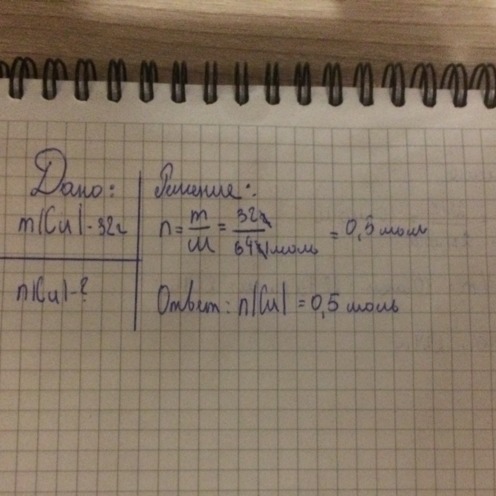 Дано:
m(Cu)-32г
n(Cu)-?
Решение:
n=m/M=32г/64г/моль=0,5 моль
Ответ: n(Cu)=0,5 моль